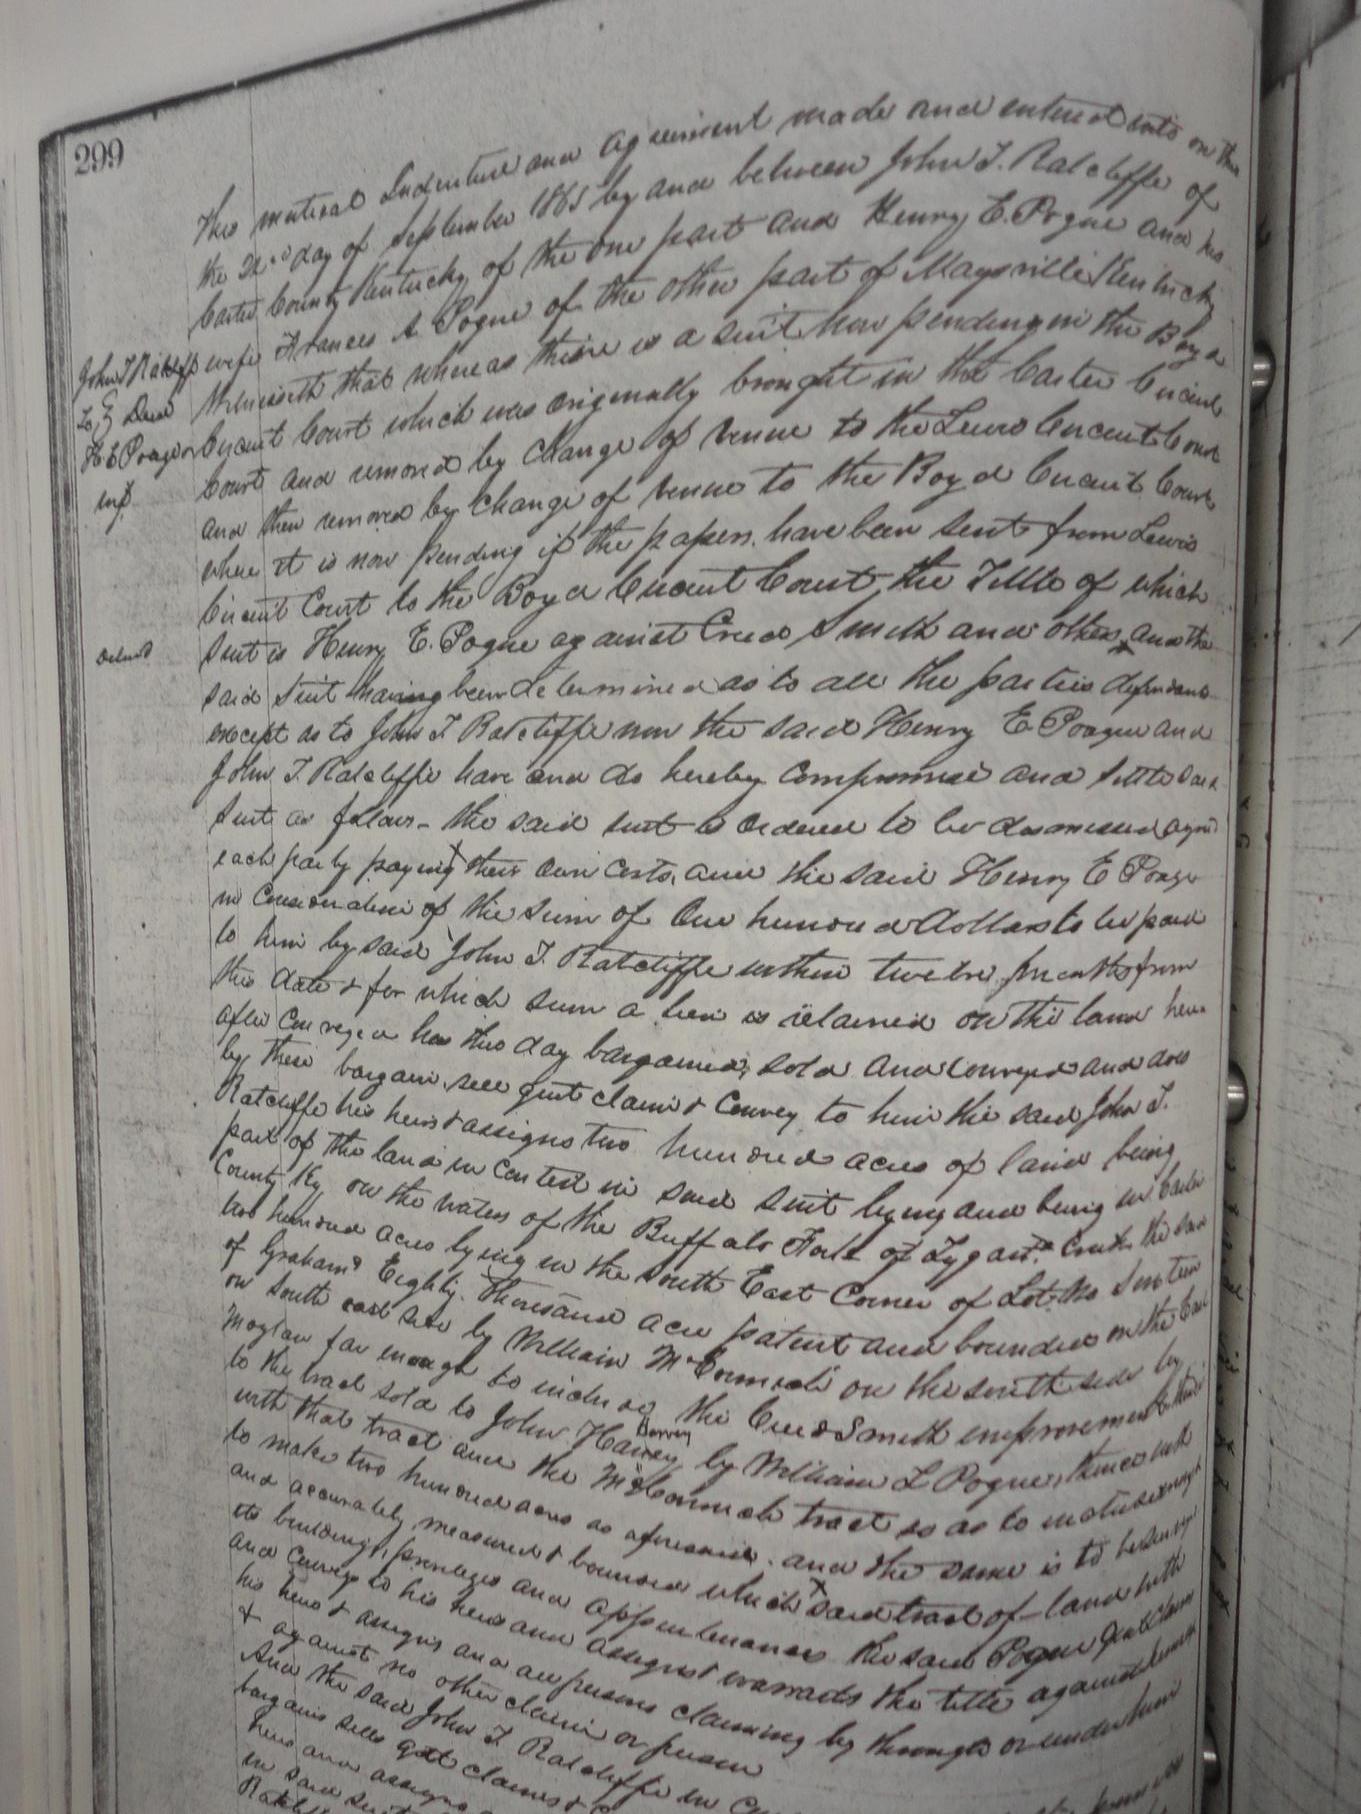 299
This mutual Indenture and agreement made and entered into on this
the 22nd day of September 1865 by and between John T. Ratcliffe of
Carter County Kentucky of the one part and Henry E. Pogue and his
wife Frances A Pogue of the other part of Maysville Kentucky
John T Ratcliff
To } Deed
H E Poague &
wf.
Witnesseth that whereas there is a suit now pending in the Boyd
Circuit Court which was originally brought in the Carter Circuit
Court and removed by change of venue to the Lewis Circuit Court
and then removed by change of venue to the Boyd Circuit Court
where it is now pending if the papers have been sent from Lewis
Circuit Court to the Boyd Circuit Court, the Tittle of which
Suit is Henry E. Pogue against Creed Smith and others, and the
said Suit having been determined as to all the parties defendants
except as to John T Ratcliffe now the said Henry E Poague and
John T. Ratcliffe have and do hereby compromise and settle said
Suit as follows - the said suit is ordered to be dismissed agreed
each party paying their own costs, and the said Henry E Poage
in consideration of the sum of One hundred dollars to be paid
to him by said John T. Ratcliffe within twelve months from
this date & for which sum a lien is retained on the land here
after conveyed has this day bargained, sold and conveyed and does
by these bargain, sell quit claim & convey to him the said John T.
Ratcliffe his heirs & assigns two hundred acres of land being
part of the land in contest in said suit lying and being in Carter
County Ky on the waters of the Buffalo Fork of Tygarts Creek the said
two hundred acres lying in the South East Corner of Lot No Seventeen
of Grahams Eighty Thousand acre patent and bounded on the East
on South east side by William McCormick on the south side by
far enough to include the Creed Smith improvement & thence
to the tract sold to John Harvey by William L Pogue, thence with
with that tract and the McCormick tract so as to include enough
to make two hundred acres as aforesaid. and the same is to be surveyed
and accurately measured & bounded which said tract of land with
its buildings, privileges and appurtenances the said Pogue quit claims
and conveys to his heirs and assigns & warrants the title against himself
his heirs & assigns and all persons claiming by through or under him
& against no other claim or person
And the said John T. Ratcliffe in
bargains sells quit claims &
heirs and assigns
in said suit